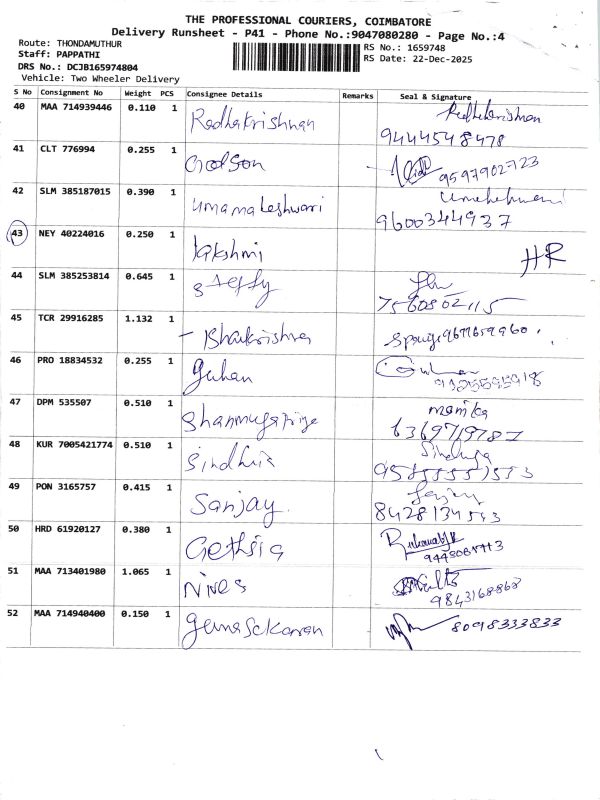 THE PROFESSIONAL COURIERS, COIMBATORE
Delivery Runsheet - P41 - Phone No.:9047080280 - Page No.:4
Route: THONDAMUTHUR
Staff: PAPPATHI
DRS No.: DCJB165974804
Vehicle: Two Wheeler Delivery
RS No.: 1659748
RS Date: 22-Dec-2025
S No Consignment No Weight PCS Consignee Details Remarks Seal & Signature
40 MAA 714939446 0.110 1 Radhakrishnan Radhakrishnan
9444548478
41 CLT 776994 0.255 1 Godson 9597902723
42 SLM 385187015 0.390 1 Umamaheshwari
9600344937
43 NEY 40224016 0.250 1 lakshmi HR
44 SLM 385253814 0.645 1 Steffy
7560802115
45 TCR 29916285 1.132 1
46 PRO 18834532 0.255 1 guhan Guhan
47 DPM 535507 0.510 1 Shanmugapriya monika
6369719787
48 KUR 7005421774 0.510 1 Sindhu
49 PON 3165757 0.415 1 Sanjay Sanjay
8428134553
50 HRD 61920127 0.380 1 Gethsia
51 MAA 713401980 1.065 1 Nives
9843168868
52 MAA 714940400 0.150 1 gunasekaran 8098333833